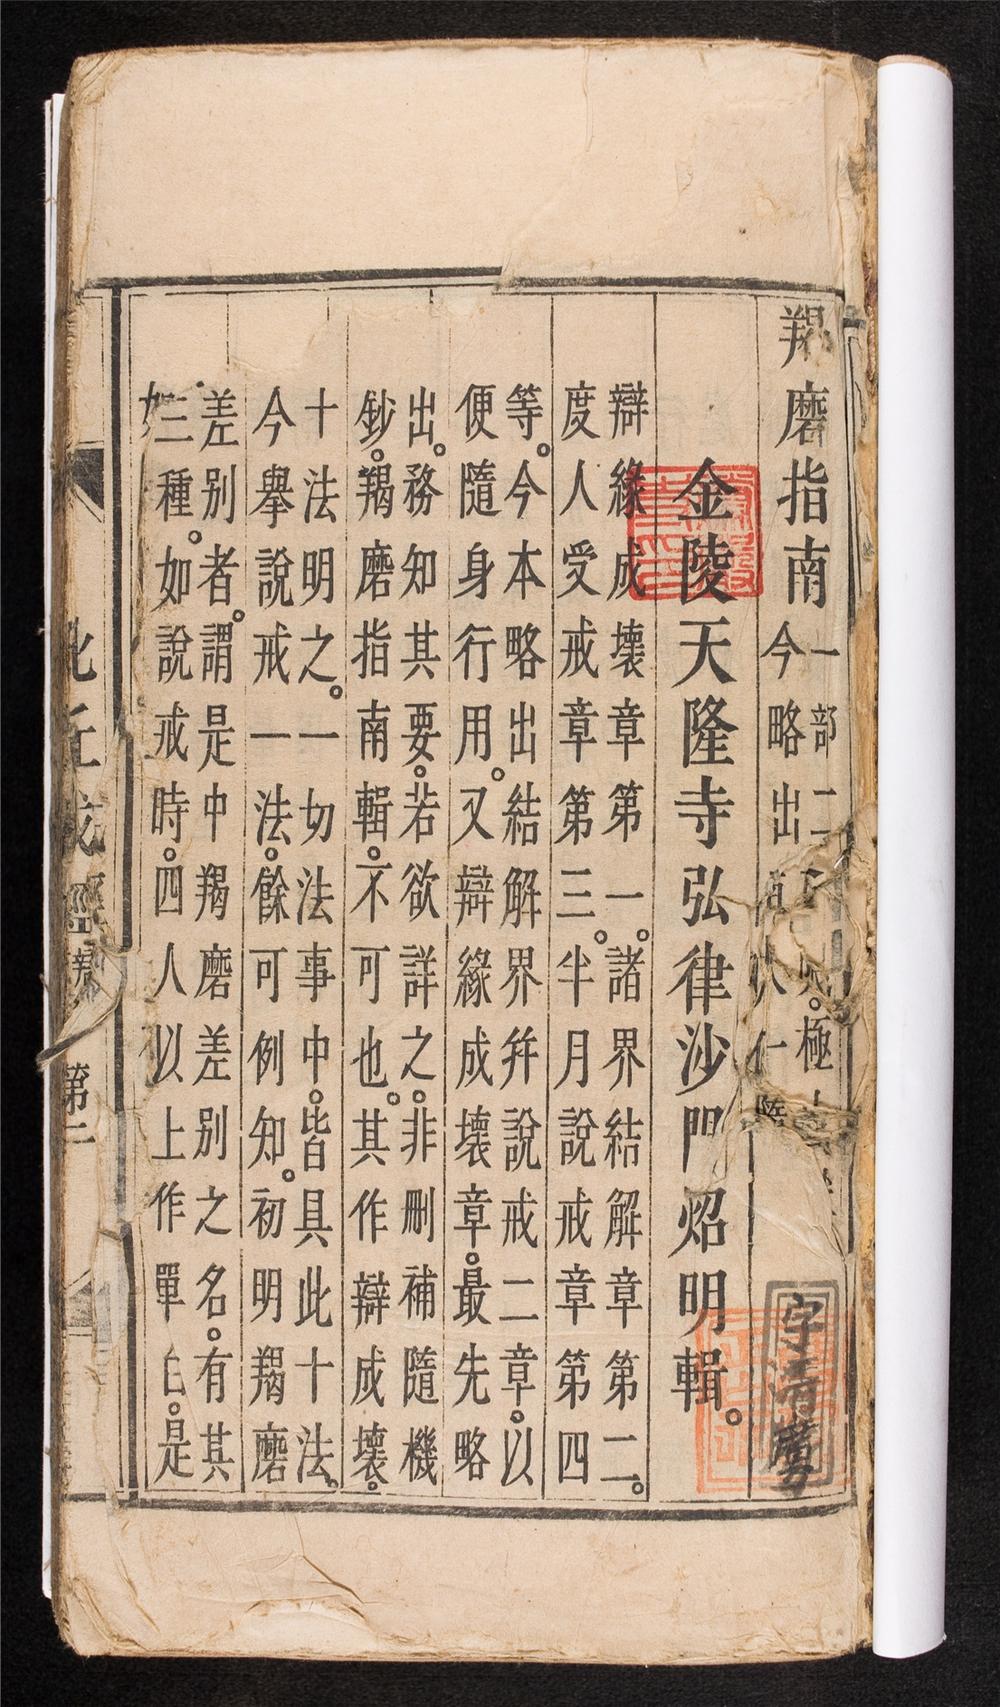 羯磨指南
一部二
極
今略出
金陵天隆寺弘律沙門炤明輯。
辯緣成壞章第一。諸界結解章第二。
度人受戒章第三。半月說戒章第四
等。今本略出結解界并說戒二章。以
便隨身行用。又辯緣成壞章。最先略
出。務知其要。若欲詳之。非刪補隨機
鈔。羯磨指南輯。不可也。其作辯成壞。
十法明之。一切法事中。皆具此十法。
今舉說戒一法。餘可例知。初明羯磨
差別者。謂是中羯磨差別之名。有其
三種。如說戒時。四人以上作單白。是
比丘戒經
第二
字清賡